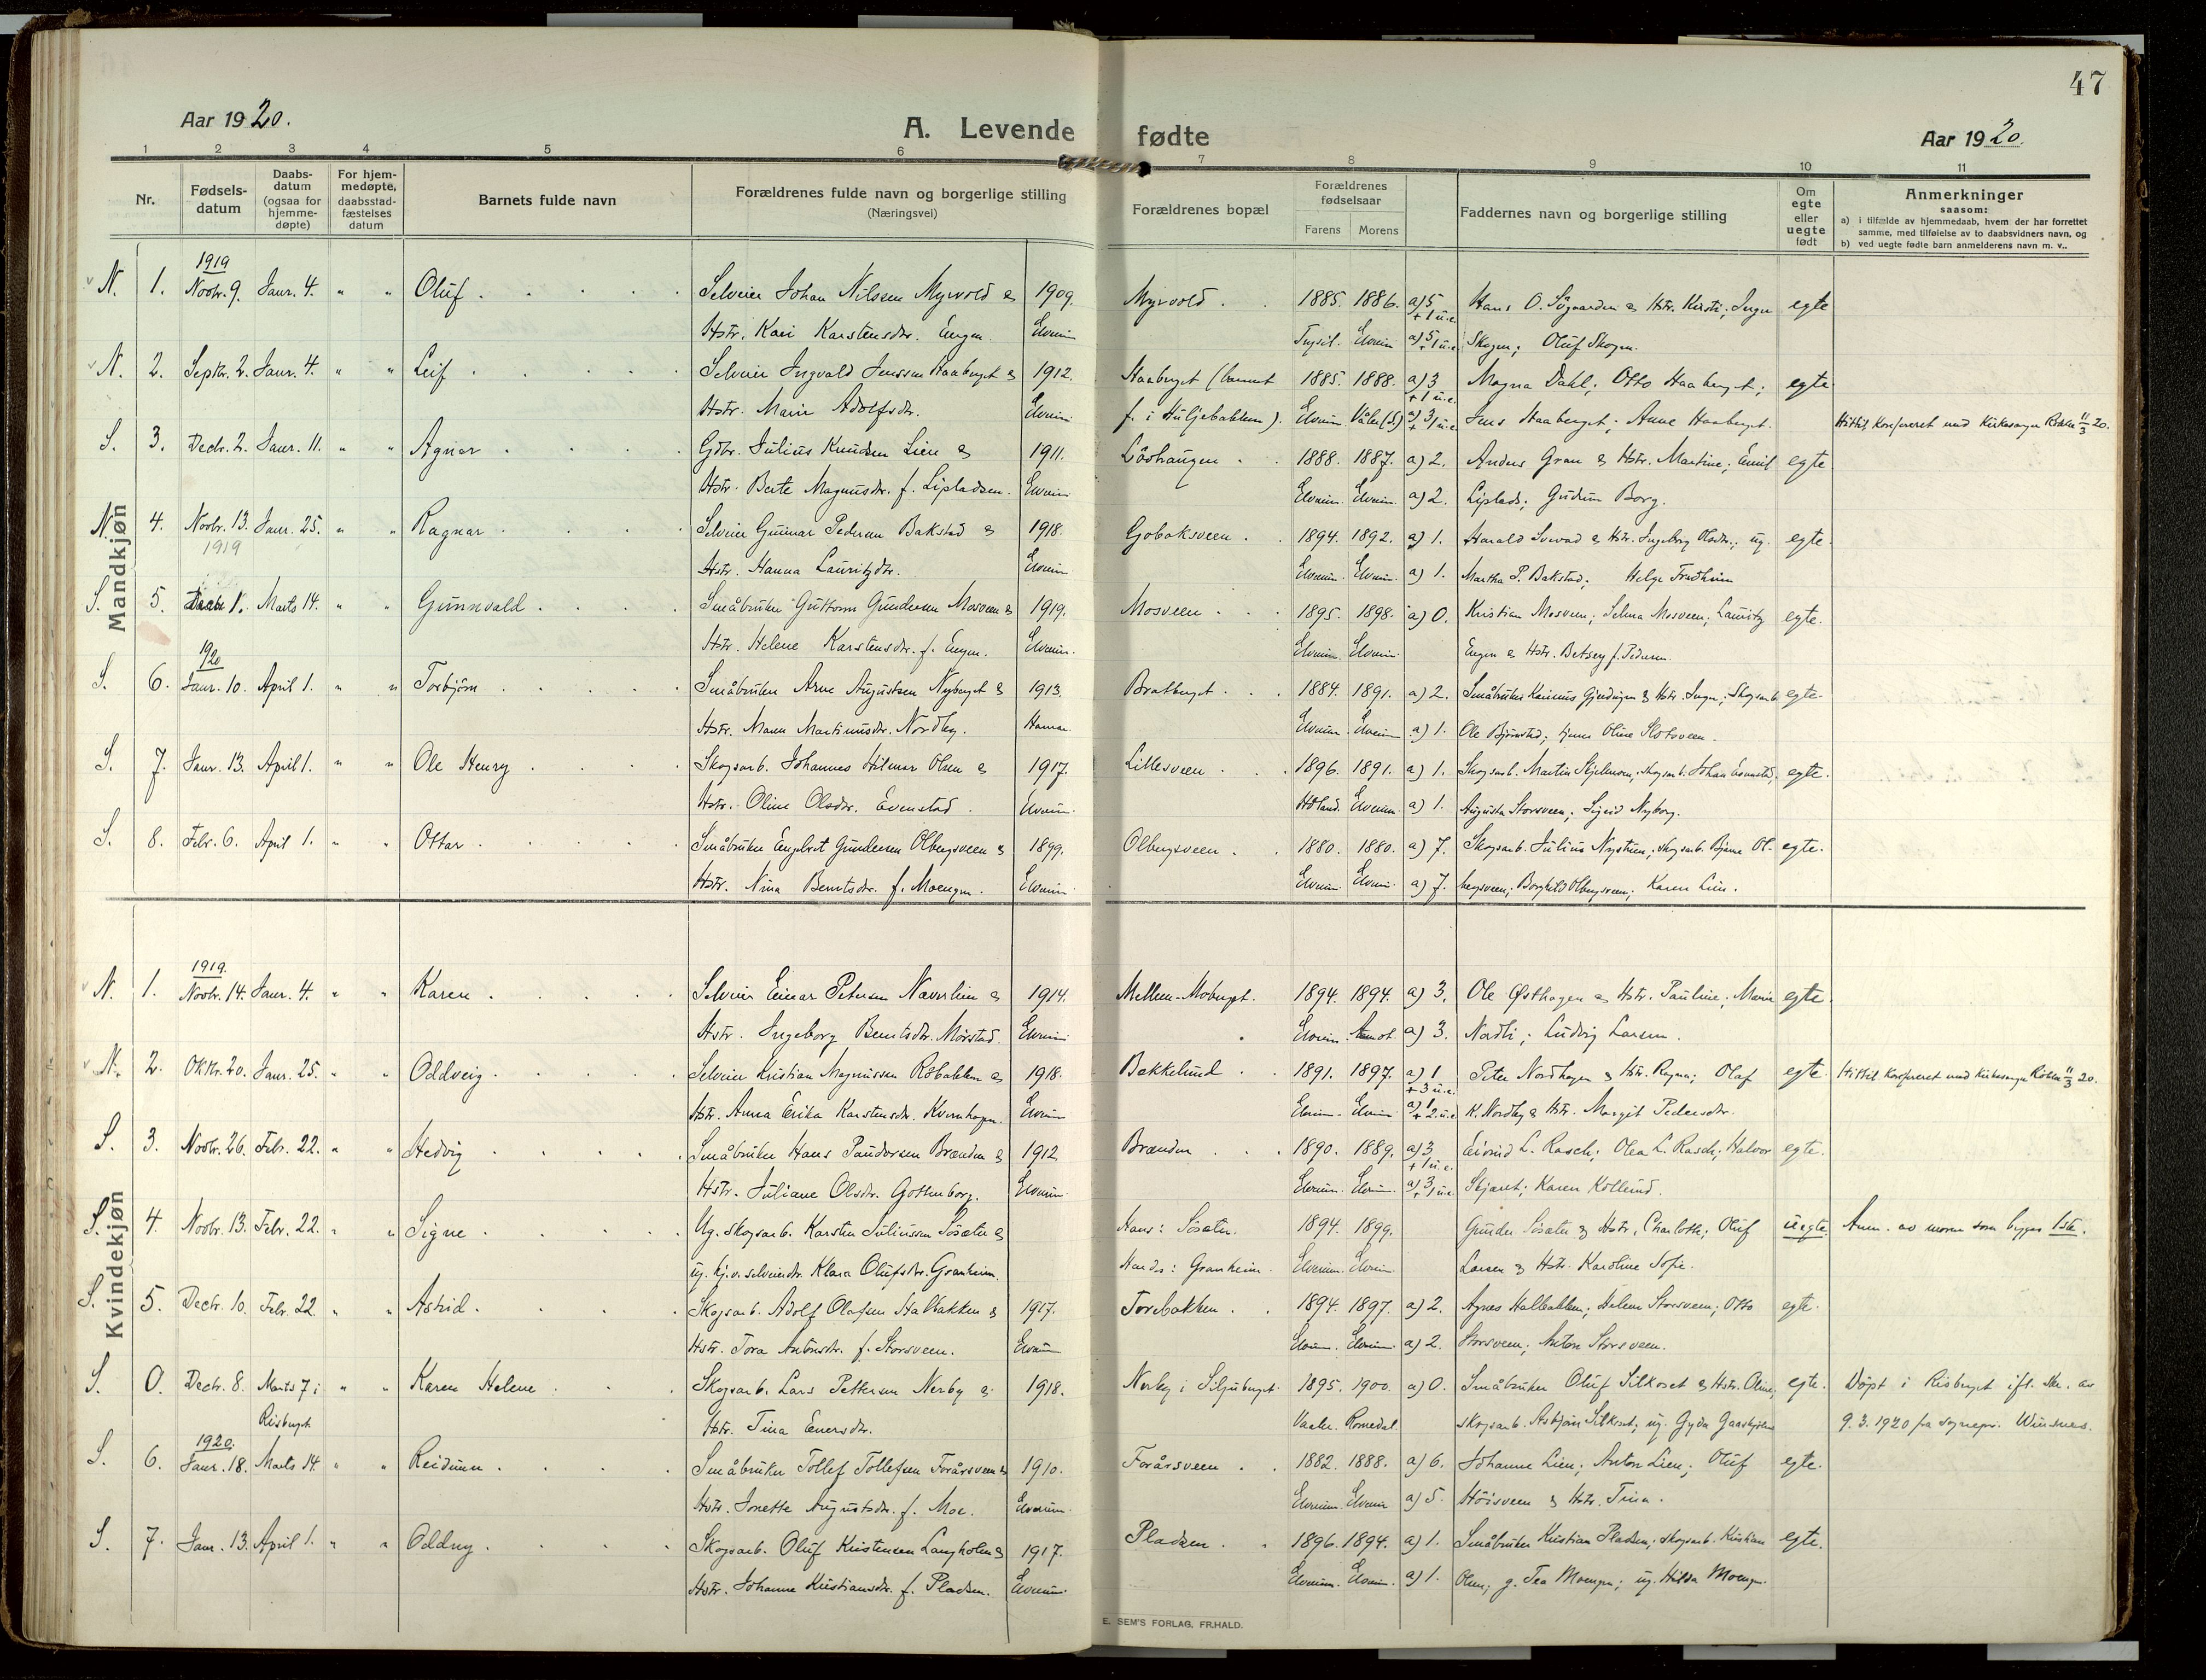 47
Aar 1920.
A. Levende fødte
Aar 1920.
1 2 3 4 5 6 7 8 9 10 11
Nr.
Fødsels-
datum
Daabs-
datum
(ogsaa for
hjemme-
døpte)
For hjem-
medøpte,
daabsstad-
fæstelses
datum
Barnets fulde navn
Forældrenes fulde navn og borgerlige stilling
(Næringsvei)
Forældrenes bopæl
Forældrenes
fødselsaar
Farens Morens
Faddernes navn og borgerlige stilling
Om
egte
eller
uegte
født
Anmerkninger
saasom:
a) i tilfælde av hjemmedaab, hvem der har forrettet
samme, med tilføielse av to daabsvidners navn, og
b) ved uegte fødte barn anmelderens navn m. v..
Mandkjøn
1919
N. 1. Novbr. 9. Janr. 4. " " Oluf Selveier Johan Nilssen Myrvold & 1909. Myrvold 1885. 1886. a) 5 + 1 u.e. Hans O. Sögaarden & Hstr. Kirsti; Inga egte
Hstr. Kari Karstensdtr. Engen. Elverum Trysil. Elverum a) 5 + 1 u.e. Skogen; Oluf Skogen.
N. 2. Septbr. 2. Janr. 4. " " Leif Selveier Ingvald Jenssen Haaberget & 1912. Haaberget (barnet 1885. 1888. a) 3 + 1 u.e. Magna Dahl; Otto Haaberget; egte
Hstr. Marie Adolfsdtr. Elverum f. i Huljebakken). Elverum Våler (S.) a) 3 + 1 u.e. Jens Haaberget; Anne Haaberget. Hittil konfereret med Kirkesanger 11/3 20.
S. 3. Decbr. 2. Janr. 11. " " Agnar Gdbr. Julius Knudsen Lien & 1911. Löshaugen 1888. 1887. a) 2. Anders Gran & Hstr. Martine; Emil egte
Hstr. Berte Magnusdtr. f. Lipladsen. Elverum Elverum. Elverum. a) 2. Liplads; Gudrun Borg.
N. 4. Novbr. 13. Janr. 25. " " Ragnar Selveier Gunnar Pedersen Bakstad & 1918. Gobaksveen 1894. 1892. a) 1. Harald & Hstr. Ingeborg Olsdtr.; ug. egte.
1919 Hstr. Hanna Lauritzdtr. Elverum Elverum. Elverum. a) 1. Martha P. Bakstad; Helge
S. 5. Decbr. 1. Marts 14. " " Gunnvald Småbruker Guttorm Gundersen Mosveen & 1919. Mosveen 1895. 1898. a) 0. Kristian Mosveen; Selma Mosveen; Lauritz egte.
Hstr. Helene Karstensdtr. f. Engen. Elverum. Elverum. Elverum. Engen & Hstr. Betsey f. Pedersen.
1920
S. 6. Janr. 10. April 1. " " Torbjörn Småbruker Arne Augustsen Nyberget & 1913. Bratberget 1884. 1891. a) 2. Småbruker Karinius & Hstr. Inga; Skogsarb. egte.
Hstr. Maren Martinusdtr. Nordby. Hamar Elverum. Elverum a) 1. Ole Björnstad; tjener Oline Slotsveen.
S. 7. Janr. 13. April 1. " " Ole Henry Skogsarb. Johannes Hilmar Olsen & 1917. Lillesveen 1896. 1891. a) 1. Skogsarb. Martin; skogsarb. Johan Evenstad; egte.
Hstr. Oline Olsdtr. Evenstad. Elverum. Höland. Elverum a) 1. Augusta Storsveen; Sigrid Nyborg.
S. 8. Febr. 6. April 1. " " Ottar Småbruker Engebret Gundersen Olbergsveen & 1899. Olbergsveen 1880. 1880. a) 7. Skogsarb. Julius Nystuen; skogsarb. Bjarne Ol- egte.
Hstr. Nina Berntsdtr. f. Moengen. Elverum Elverum Elverum. a) 7. bergsveen; Borghild Olbergsveen; Karen Lien.
Kvindekjøn
1919.
N. 1. Novbr. 14. Janr. 4. " " Karen Selveier Einar Petersen Naverlien & 1914. Mellem-Moberget. 1894. 1894. a) 3. Ole Østhagen & Hstr. Pauline; Marie egte
Hstr. Ingeborg Berntsdtr. Mørstad Elverum Elverum. Aamot. a) 3. Nordli; Ludvig Larsen.
N. 2. Oktbr. 20. Janr. 25. " " Oddveig Selveier Kristian Magnussen Röbakken & 1918. Bekkelund 1891. 1897. a) 1 + 3 u.e. Peter Nordhagen & Hstr. Ragna; Olaf egte Hittil konfereret med Kirkesanger 11/3 20.
Hstr. Anna Erika Karstensdtr. Kvernhagen. Elverum Elverum. Elverum a) 1 + 2 u.e. K. Nordby & Hstr. Margit Pedersdtr.
S. 3. Novbr. 26. Febr. 22. " " Hedvig Småbruker Hans Paudersen Brænden & 1912 Brænden 1890. 1889. a) 3 + 1 u.e. Eivind L. Rasch; Olea L. Rasch; Halvor egte.
Hstr. Juliane Olsdtr. Gottenborg. Elverum Elverum. Elverum. a) 3 + 1 u.e. Skjaret; Karen Kollund.
S. 4. Novbr. 13. Febr. 22. " " Signe Ug. skogsarb. Karsten Juliussen Sösæter & Hans: Sösæter. 1894. 1899. Gunder Sösæter & Hstr. Charlotte; Oluf uegte. Anm. av moren som begges 1ste.
ug. hj.v. selveierdtr. Klara Olufsdtr. Granheim. Hendes: Granheim. Elverum. Elverum. Larsen & Hstr. Karoline Sofie.
S. 5. Decbr. 10. Febr. 22 " " Astrid Skogsarb. Adolf Olafsen Halbakken & 1917. Torebakken 1894. 1897. a) 2. Agnes Halbakken; Helene Storsveen; Otto egte
Hstr. Tora Antonsdtr. f. Storsveen. Elverum Elverum. Elverum. a) 2. Storsveen; Anton Storsveen.
S. 0. Decbr. 8. Marts 7 i " " Karen Helene Skogsarb. Lars Pettersen Nerby & 1918. Nerby i Siljuberget. 1895. 1900. a) 0. Småbruker Oluf Silkoset & Hstr. Oline; egte. Döpt i Risberget ifl. skr. av
Risberget Hstr. Tina Enersdtr. Vaaler. Romedal. skogsarb. Asbjörn Silkoset; ug. Gyda 9.3.1920 fra sognepr. Winsnes.
1920.
S. 6. Janr. 18. Marts 14. " " Reidunn Småbruker Tollef Tollefsen Forårsveen & 1910. Forårsveen 1882. 1888. a) 6. Johanne Lien; Anton Lien; Oluf egte.
Hstr. Jonette Augustsdtr. f. Moe. Elverum. Elverum. Elverum a) 5. Höisveen & Hstr. Tina.
S. 7. Janr. 13. April 1. " " Oddny Skogsarb. Oluf Kristensen Langholen & 1917. Pladsen 1896. 1894. a) 1. Småbruker Kristian Pladsen; skogsarb. Kristian egte.
Hstr. Johanne Kristiansdtr. f. Pladsen. Elverum. Elverum. Elverum. a) 1. Olsen; g. Tea Moengen; ug. Hilda Moengen.
E. SEM'S FORLAG, FR.HALD.